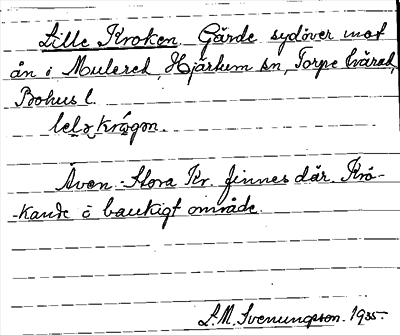 Lille Kroken, Gärde sydöver mot
ån i Mulered, Hjärtum sn, Torpe härad,
Bohus l.
lelə krogən.
Även Stora Kr. finnes där. Kro-
-kande o backigt område.
S.M. Svenungsson. 1935.